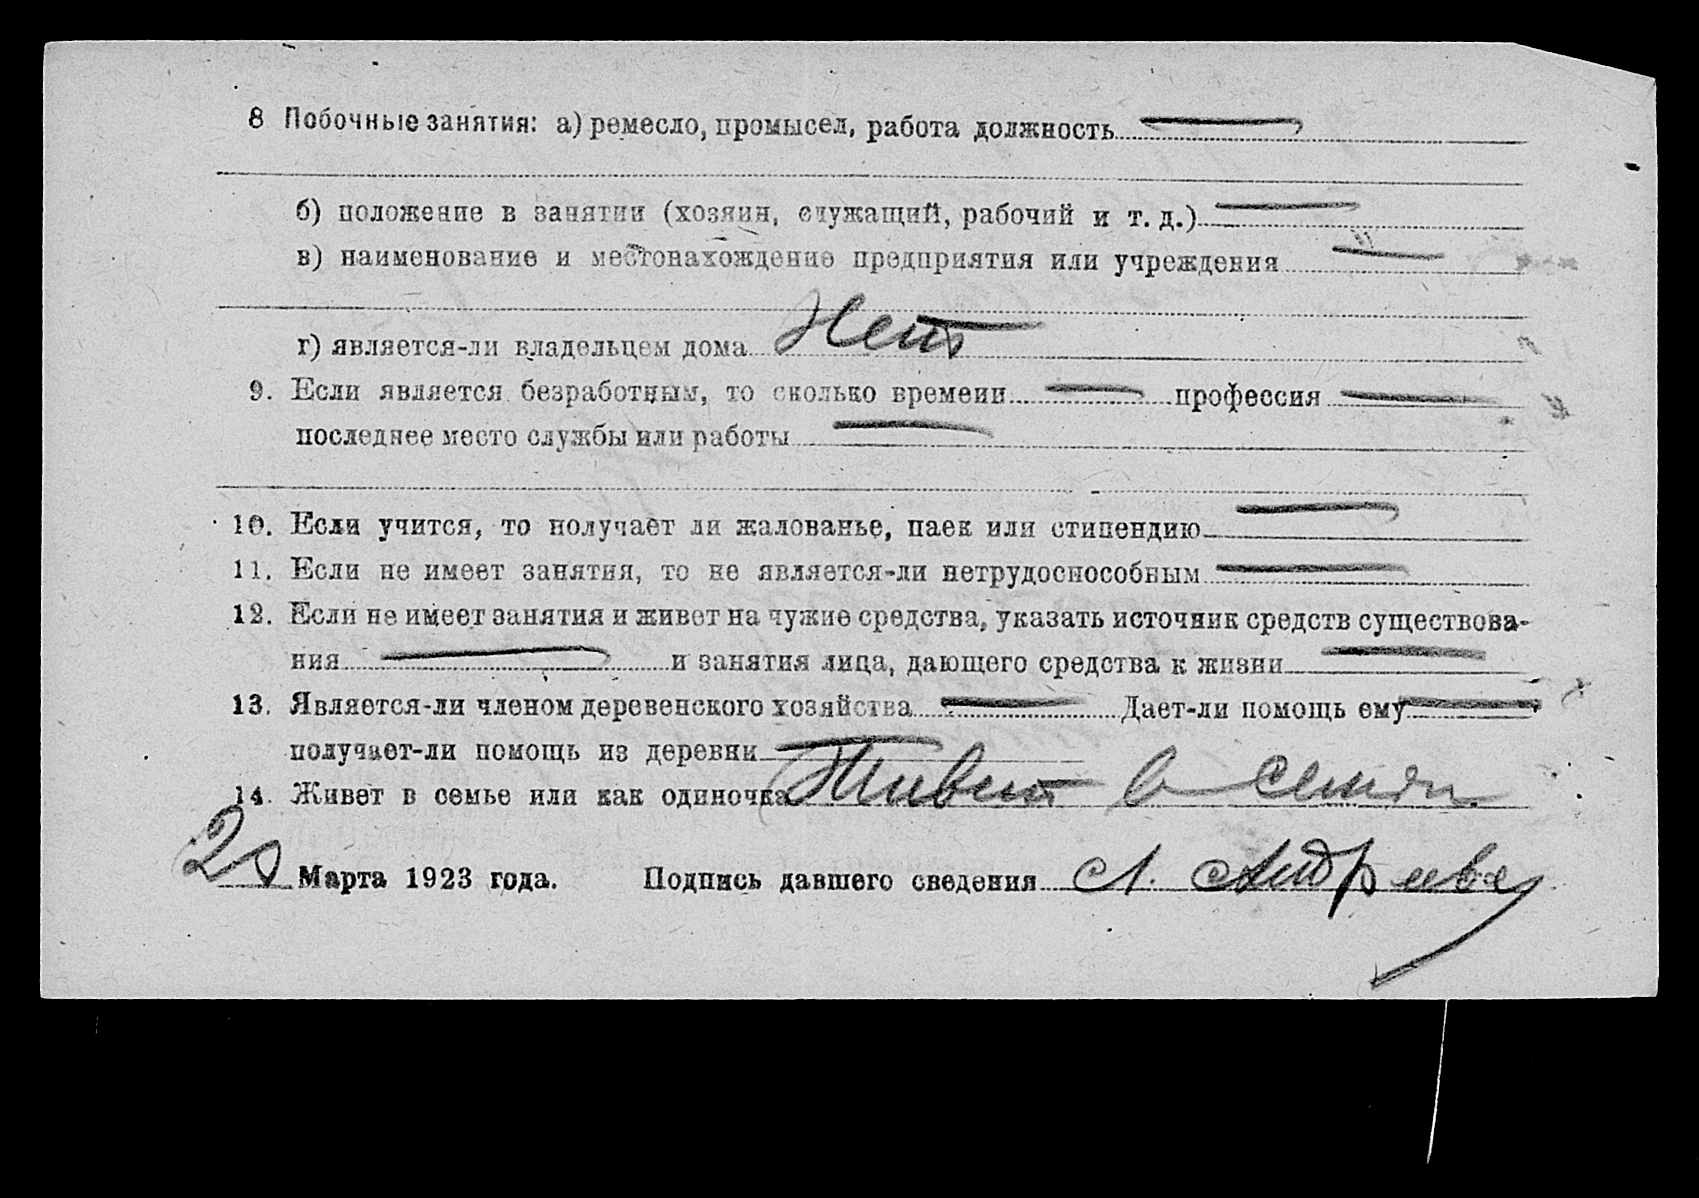 8 Побочные занятия: а) ремесло, промысел, работа должность
б) положение в занятии (хозяин, служащий, рабочий и т. д.)
в) наименование и местонахождение предприятия или учреждения
г) является-ли владельцем дома Нетъ
9. Если является безработным, то сколько времени профессия
последнее место службы или работы
10. Если учится, то получает ли жалованье, паек или стипендию
11. Если не имеет занятия, то не является-ли нетрудоспособным
12. Если не имеет занятия и живет на чужие средства, указать источник средств существова-
ния и занятия лица, дающего средства к жизни
13. Является-ли членом деревенского хозяйства Дает-ли помощь ему
получает-ли помощь из деревни
14. Живет в семье или как одиночка Живет в семьи
Марта 1923 года. Подпись давшего сведения А. Андреева